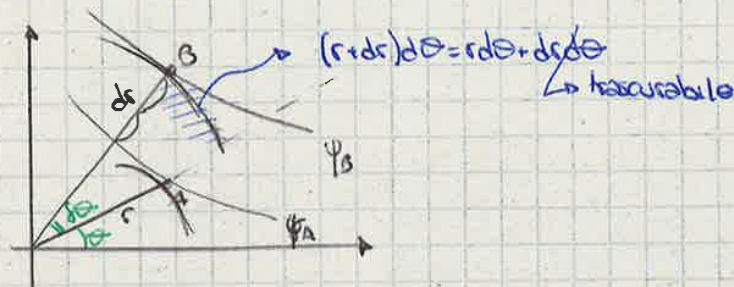 B
(r+dr)dθ=rdθ+drdθ
↳ trascurabile
dr
ψB
A
dθ
r
θ
ψA